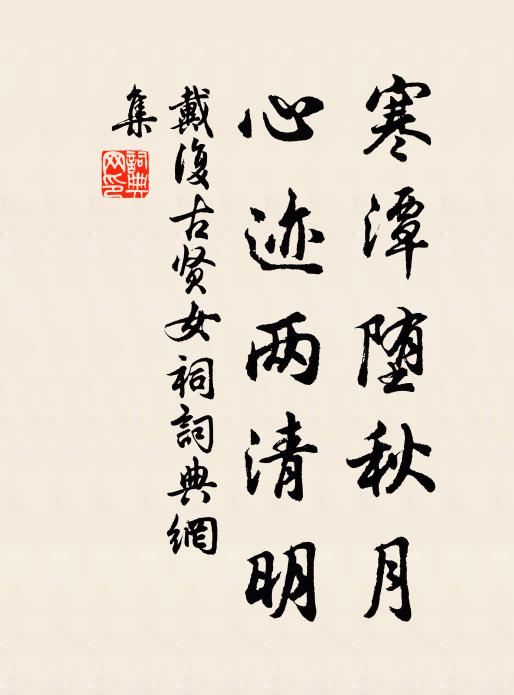 寒潭堕秋月
心迹两清明
戴復古贤女祠詞典網
集
詞典
网印